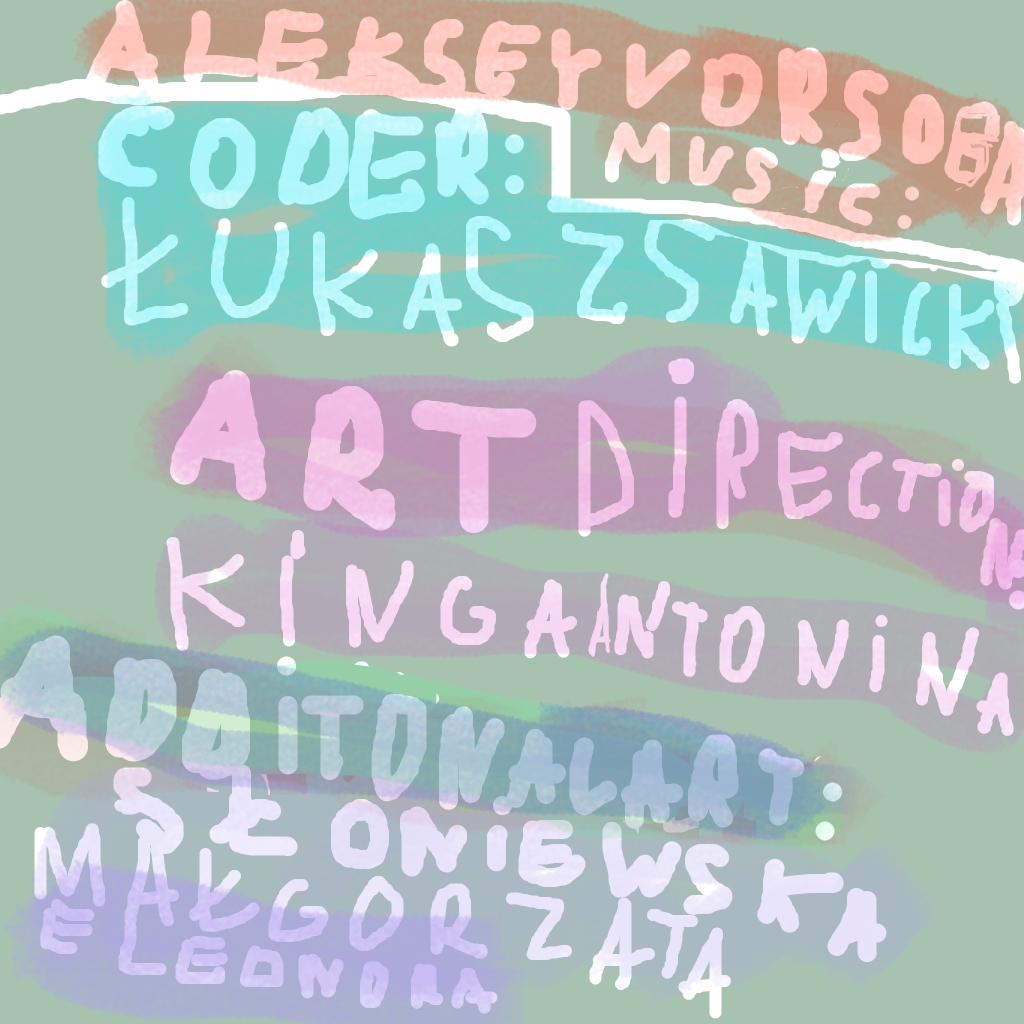 ALEKSEY VORSOBA
MUSIC:
CODER:
ŁUKASZ SAWICKI
ART DIRECTION:
KINGA ANTONINA
ADDITONAL ART:
SŁONIEWSKA
MAŁGORZATA
ELEONORA